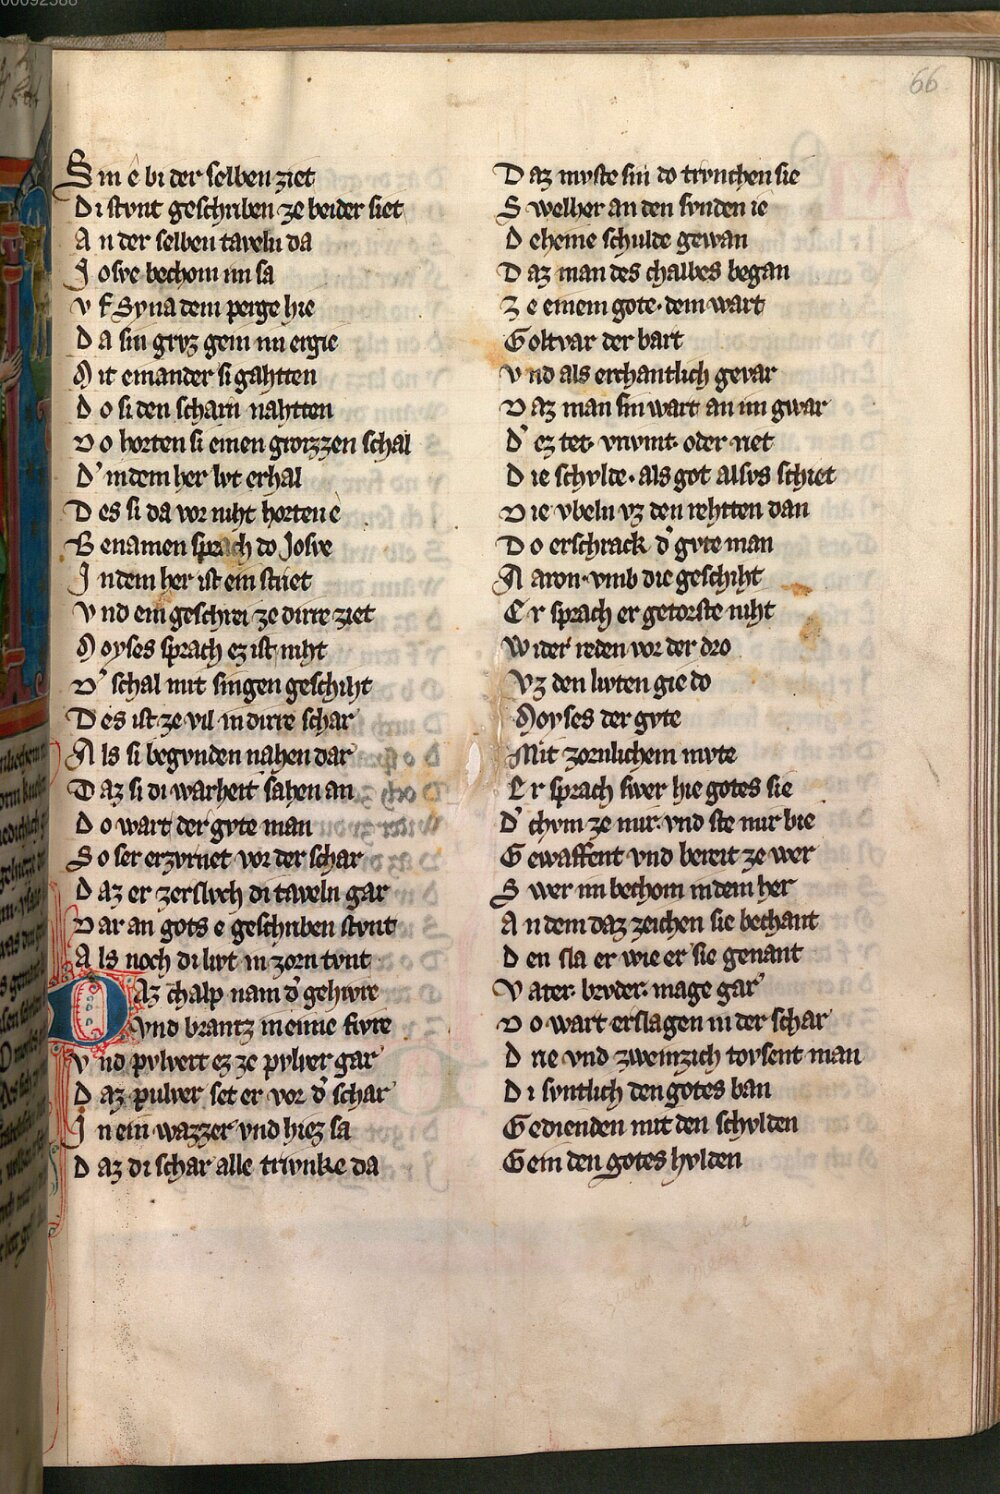 00092588
66
Sin ê bi der selben ziet
Di stvnt geschriben ze beider siet
An der selben taveln da
Josve bechom im sa
vf Syna dem perge hie
Da sin grvz gein im ergie
Mit einander si gahtten
Do si den scharn nahtten
Do horten si einen grozzen schal
D' in dem her lvt erhal
Des si da vor niht horten ê
Benamen sprach do Josve
Jn dem her ist ein striet
Vnd ein geschrei ze dirre ziet
Moyses sprach ez ist niht
D' schal mit singen geschiht
Des ist ze vil in dirre schar
Als si begvnden nahen dar
Daz si di warheit sahen an
Do wart der gvte man
So ser erzvrnet vor der schar
Daz er zerslvch di taveln gar
Dar an gots e geschriben stvnt
Als noch di livt in zorn tvnt
DAz chalp nam d' gehivre
vnd brantz in einie fivre
Vnd pvlvert ez ze pvlver gar
Daz pulver set er vor d' schar
Jn ein wazzer vnd hiez sa
Daz di schar alle trivnke da
Daz mvste sin do trvnchen sie
Swelher an den svnden ie
Deheine schulde gewan
Daz man des chalbes began
Ze einem gote· dem wart
Goltvar der bart
Vnd als erchantlich gevar
Daz man sin wart an im gwar
D' ez tet· vnvmt· oder riet
Die schvlde· als got alsvs schiet
Die vbeln vz den rehtten dan
Do erschrack d' gvte man
Aaron· vmb die geschiht
Er sprach er getorste niht
Wider reden vor der dro
Vz den livten gie do
Moyses der gvte
Mit zornlichem mvte
Er sprach swer hie gotes sie
D' chvm ze mir· vnd ste mir bie
Gewaffent vnd bereit ze wer
Swer im bechom in dem her
An dem daz zeichen sie bechant
Den sla er wie er sie genant
Vater· brvder· mage gar
Do wart erslagen in der schar
Drie vnd zweinzich tovsent man
Di svntlich den gotes ban
Gedienden mit den schvlden
Gein den gotes hvlden